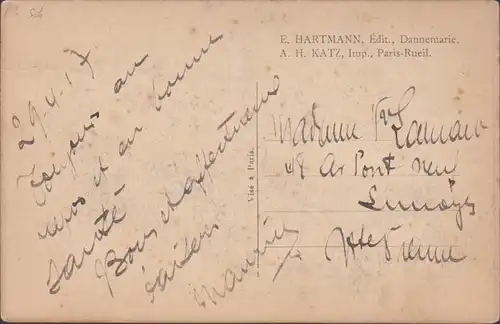 E. HARTMANN, Édit., Dannemarie.
A. H. KATZ, Imp., Paris-Rueil.
Visé à Paris.
29-4-17
Toujours au
repos et en bonne
santé
Bons et affectueux
baisers
Maurice
Madame Vve Lamand
48 Av Pont neuf
Limoges
Hte Vienne